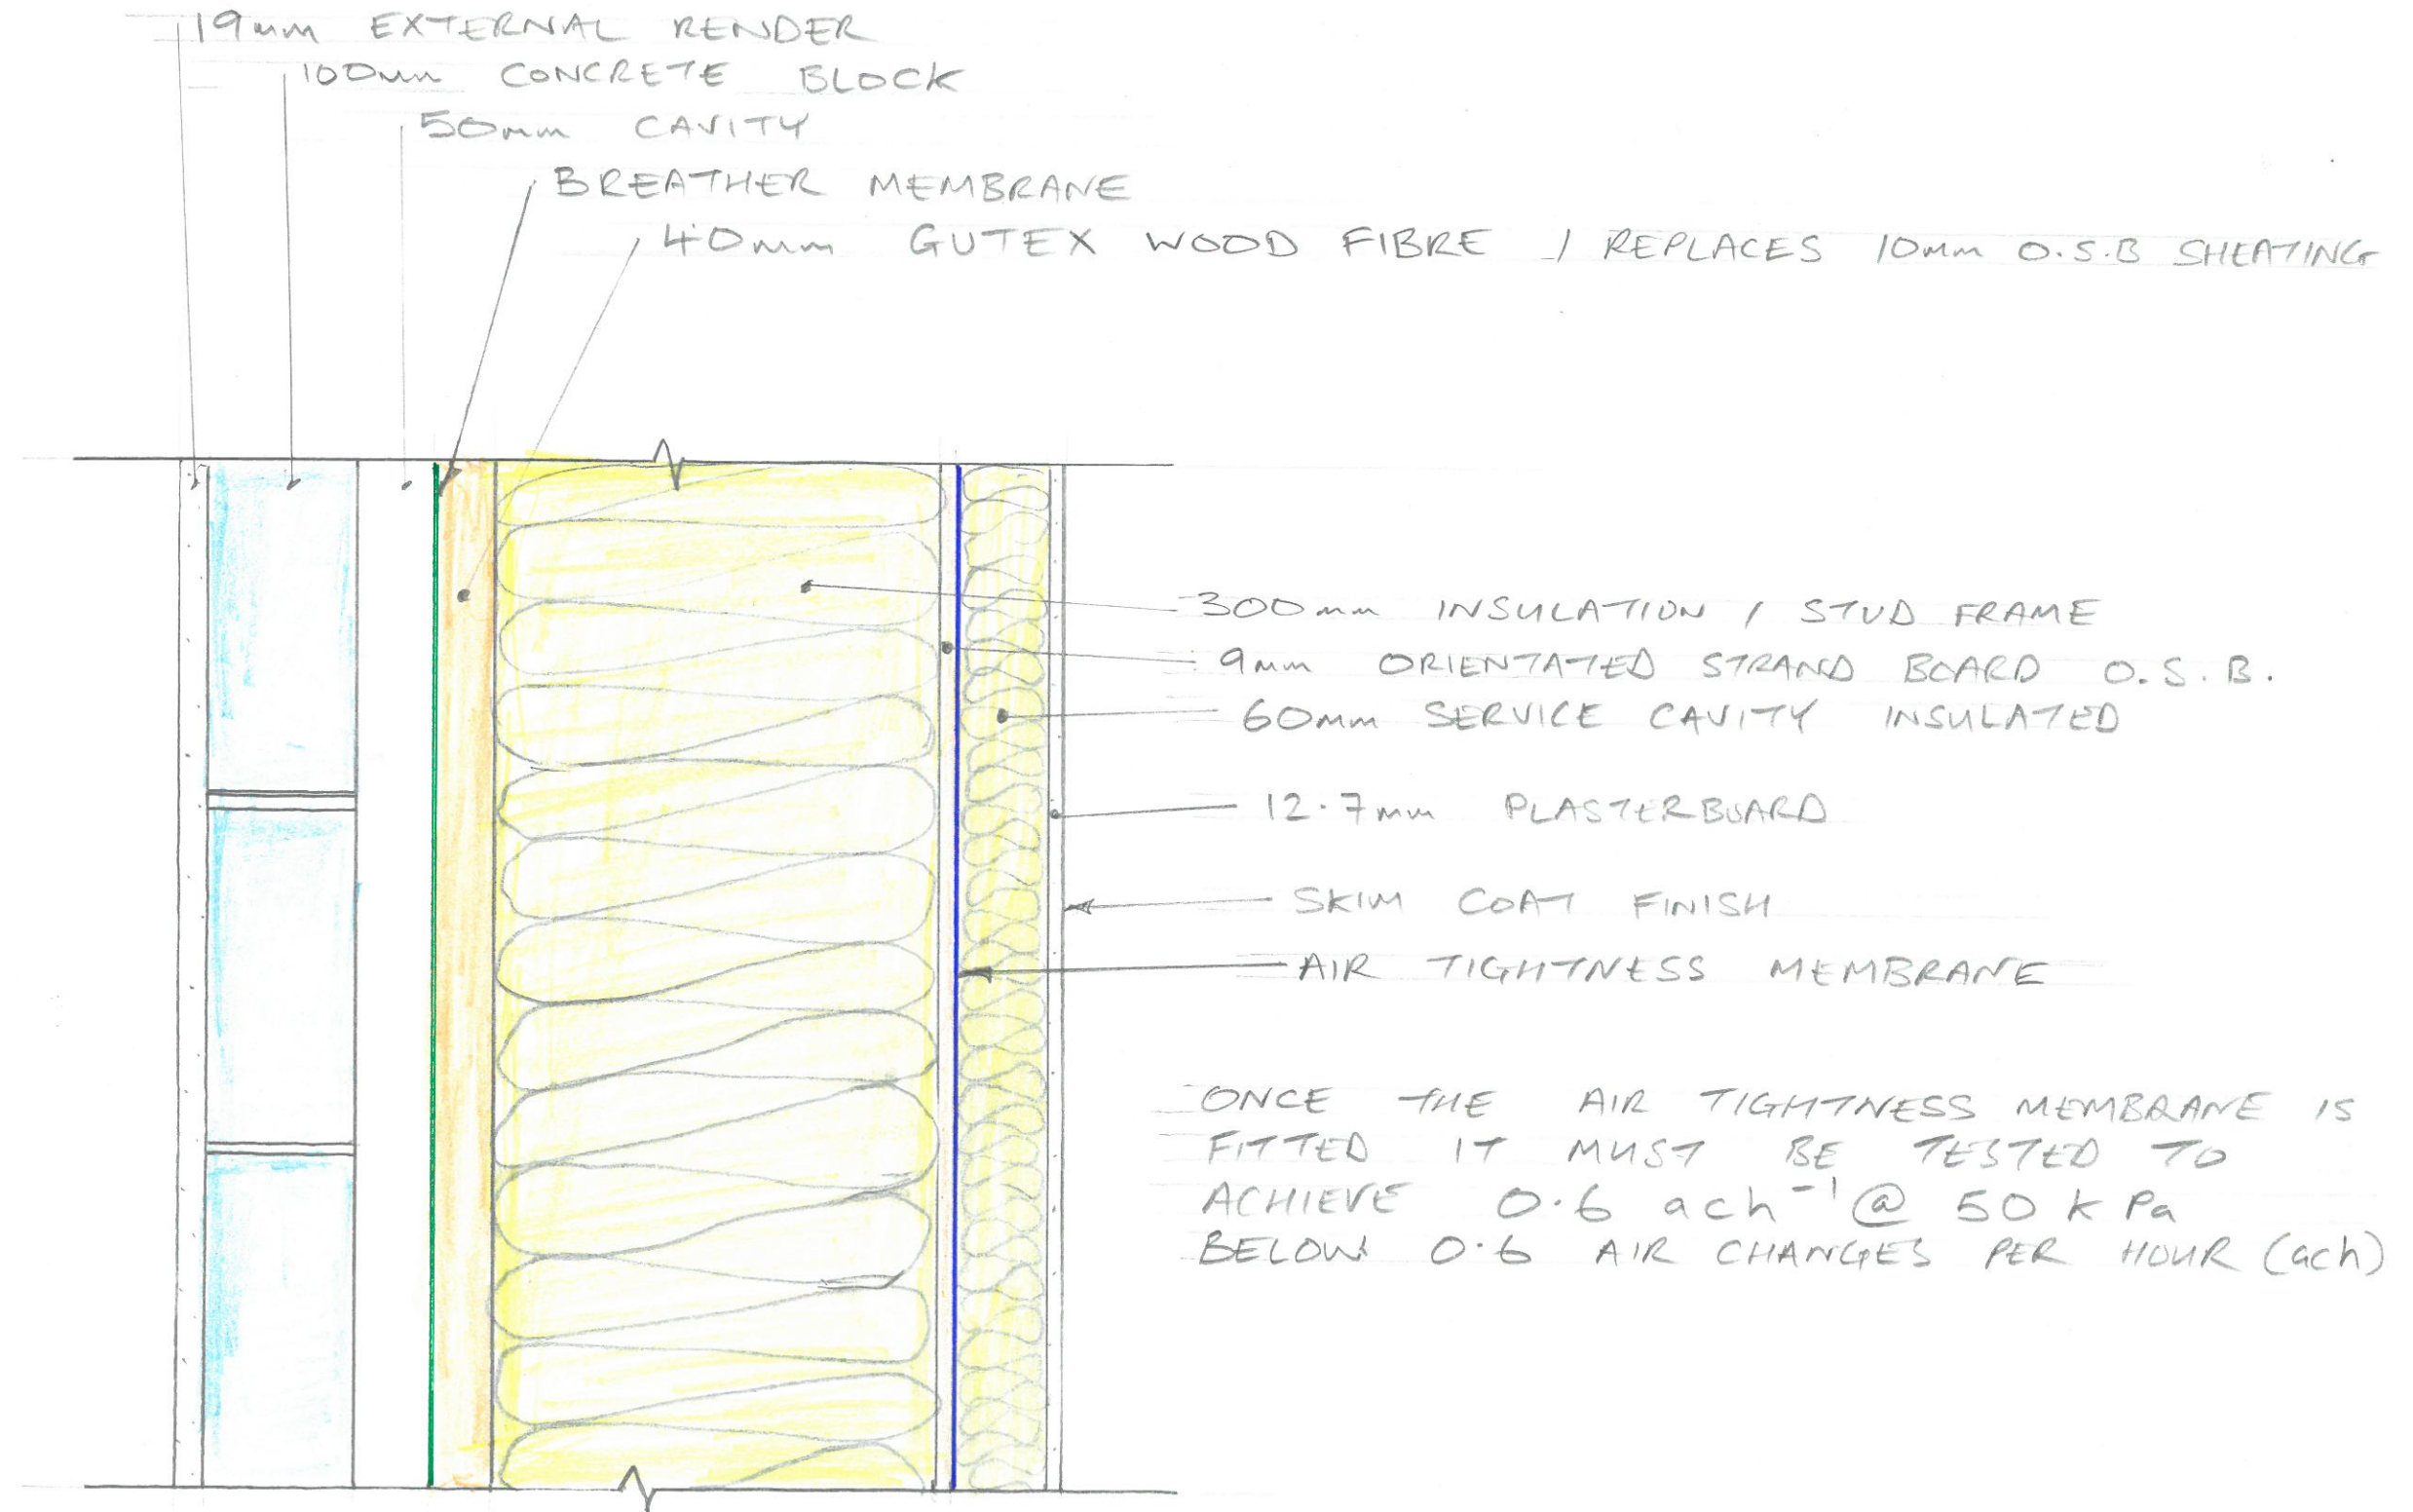 19mm EXTERNAL RENDER
100mm CONCRETE BLOCK
50mm CAVITY
BREATHER MEMBRANE
40mm GUTEX WOOD FIBRE / REPLACES 10mm O.S.B SHEATING
300mm INSULATION / STUD FRAME
9mm ORIENTATED STRAND BOARD O.S.B.
60mm SERVICE CAVITY INSULATED
12.7mm PLASTERBOARD
SKIM COAT FINISH
AIR TIGHTNESS MEMBRANE
ONCE THE AIR TIGHTNESS MEMBRANE IS
FITTED IT MUST BE TESTED TO
ACHIEVE 0.6 ach⁻¹ @ 50 kPa
BELOW 0.6 AIR CHANGES PER HOUR (ach)